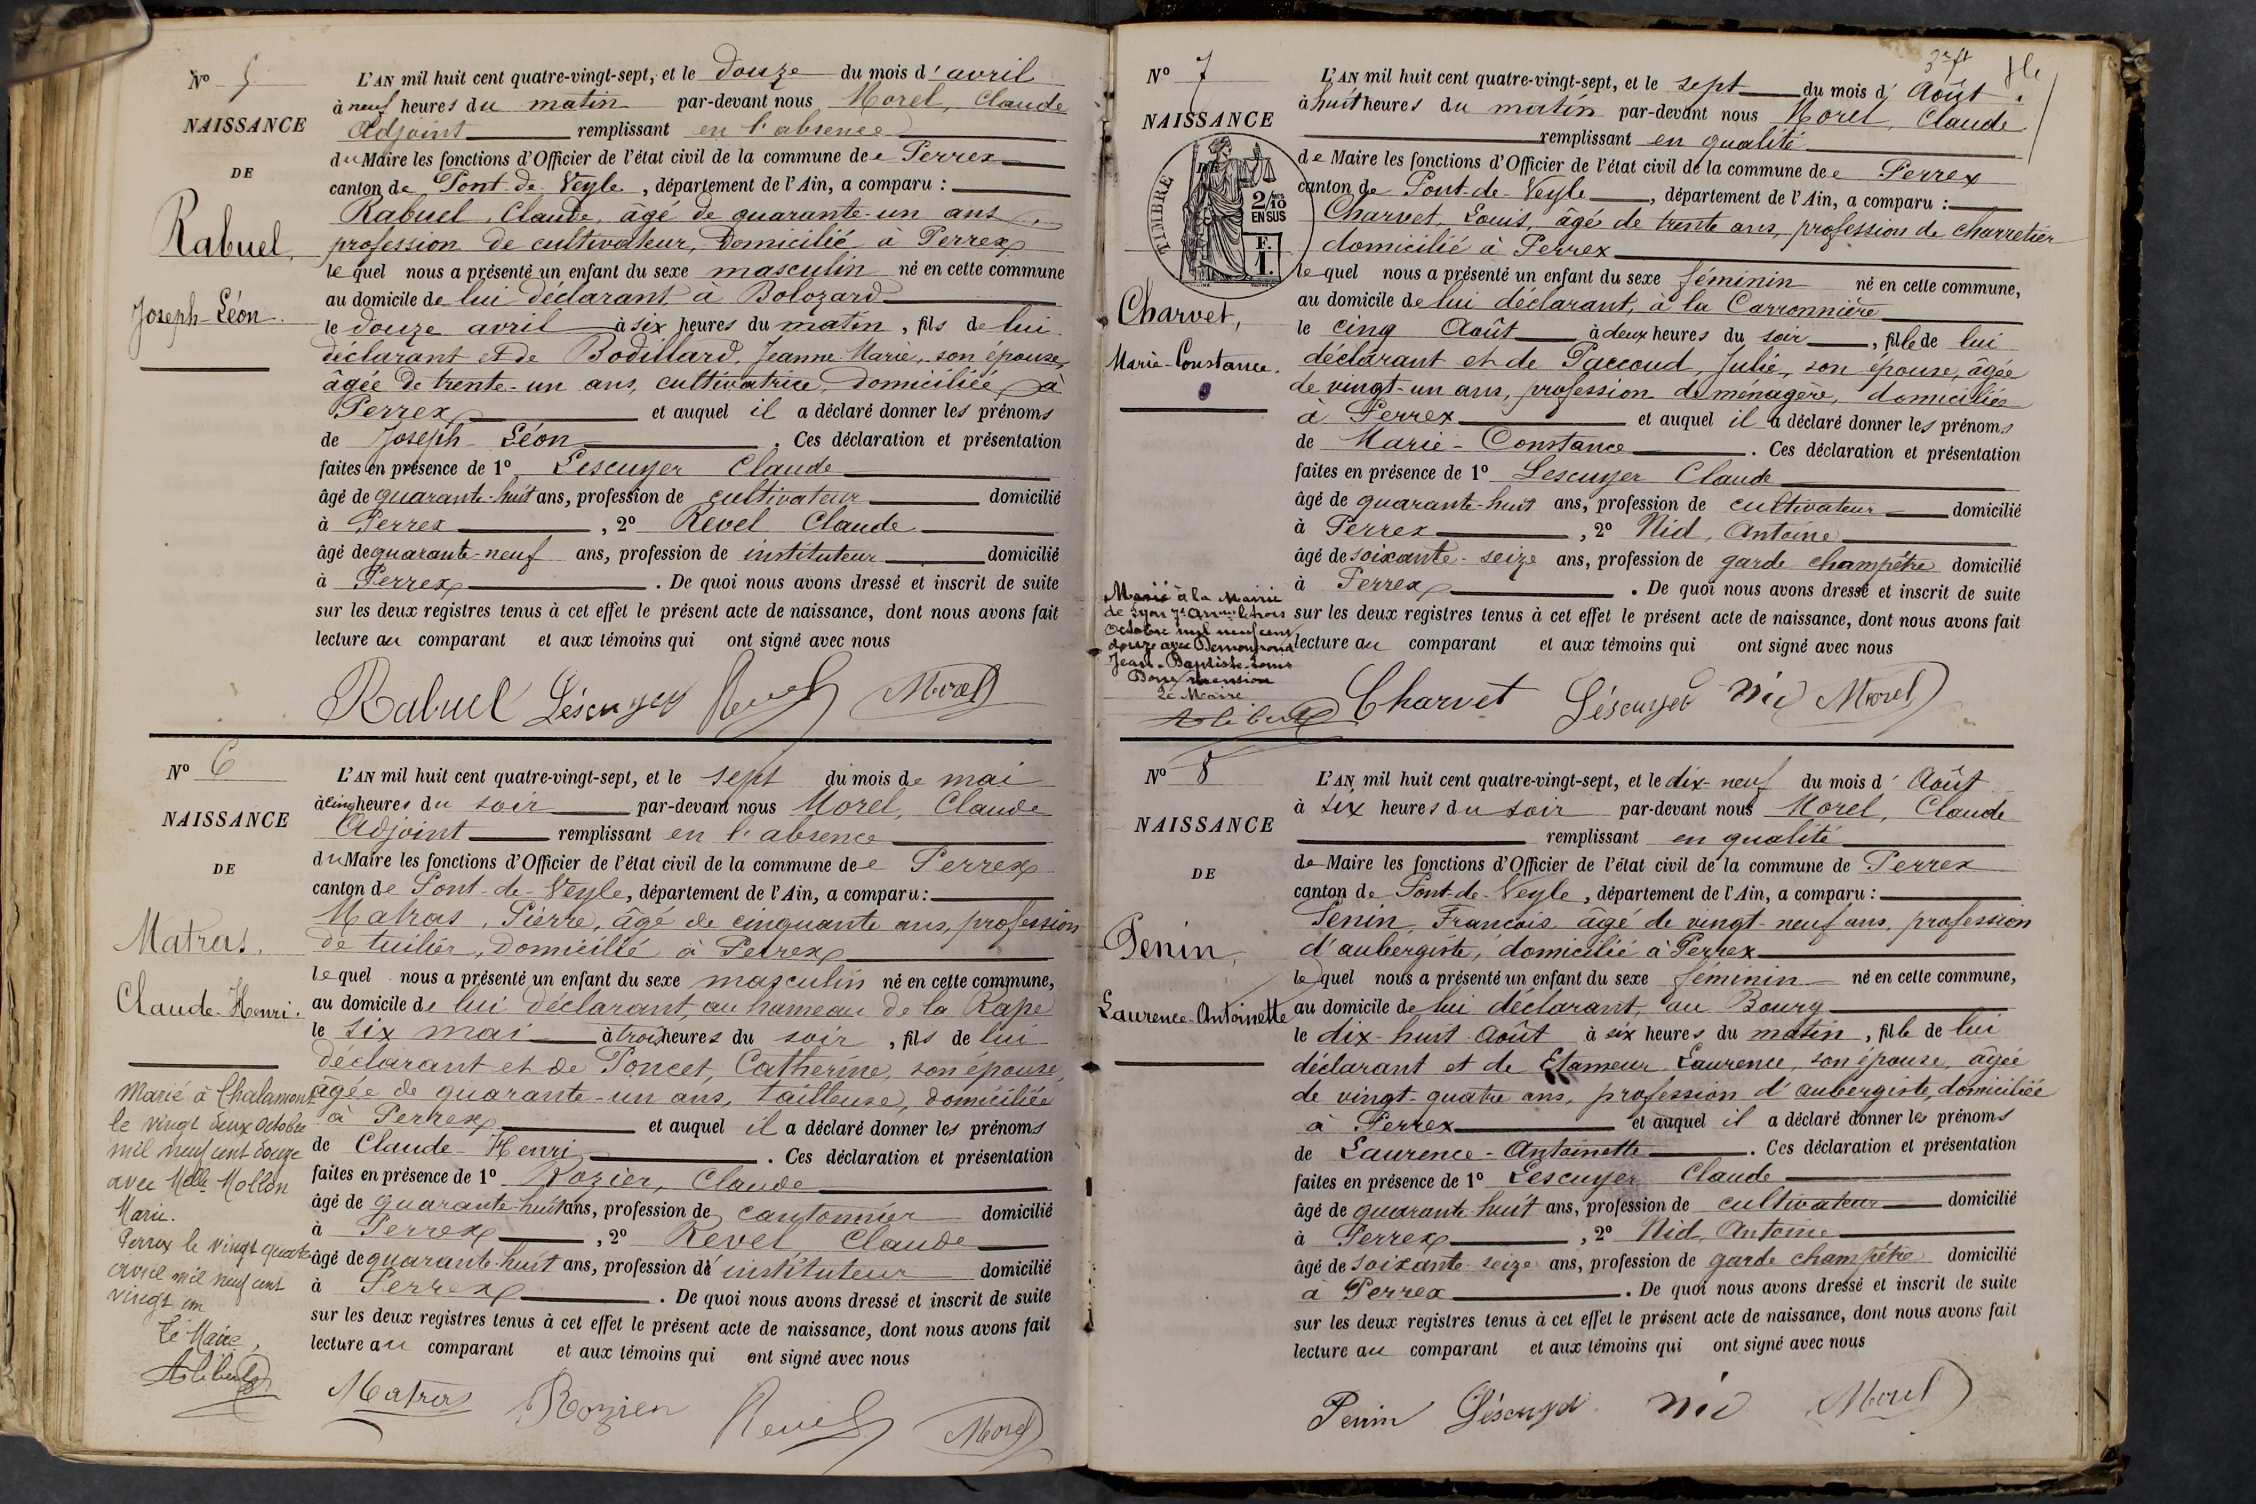 N° 5
NAISSANCE
DE
Rabuel,
Joseph-Léon.
L'AN mil huit cent quatre-vingt-sept, et le douze du mois d'avril
à neuf heures du matin par-devant nous Morel, Claude
Adjoint remplissant en l'absence
du Maire les fonctions d'Officier de l'état civil de la commune de Perrex
canton de Pont-de-Veyle, département de l'Ain, a comparu :
Rabuel, Claude, âgé de quarante-un ans,
profession de cultivateur, domicilié à Perrex
lequel nous a présenté un enfant du sexe masculin né en cette commune
au domicile de lui déclarant à Bolozard
le douze avril à six heures du matin, fils de lui
déclarant et de Bodillard, Jeanne Marie, son épouse,
âgée de trente-un ans, cultivatrice, domiciliée à
Perrex et auquel il a déclaré donner les prénoms
de Joseph-Léon. Ces déclaration et présentation
faites en présence de 1° Lescuyer Claude
âgé de quarante-huit ans, profession de cultivateur domicilié
à Perrex, 2° Revel Claude
âgé de quarante-neuf ans, profession de instituteur domicilié
à Perrex. De quoi nous avons dressé et inscrit de suite
sur les deux registres tenus à cet effet le présent acte de naissance, dont nous avons fait
lecture au comparant et aux témoins qui ont signé avec nous
Rabuel Léscuyer Revel Morel
N° 6
NAISSANCE
DE
Matras,
Claude-Henri.
L'AN mil huit cent quatre-vingt-sept, et le sept du mois de mai
à cinq heures du soir par-devant nous Morel, Claude
Adjoint remplissant en l'absence
du Maire les fonctions d'Officier de l'état civil de la commune de Perrex
canton de Pont-de-Veyle, département de l'Ain, a comparu :
Matras, Pierre, âgé de cinquante ans, profession
de tuilier, domicilié à Perrex
lequel nous a présenté un enfant du sexe masculin né en cette commune,
au domicile de lui déclarant, au hameau de la Rape
le six mai à trois heures du soir, fils de lui
déclarant et de Poncet, Catherine, son épouse,
âgée de quarante-un ans, tailleuse, domiciliée
à Perrex et auquel il a déclaré donner les prénoms
de Claude-Henri. Ces déclaration et présentation
faites en présence de 1° Rozier, Claude
âgé de quarante-huit ans, profession de cantonnier domicilié
à Perrex, 2° Revel, Claude
âgé de quarante-huit ans, profession de instituteur domicilié
à Perrex. De quoi nous avons dressé et inscrit de suite
sur les deux registres tenus à cet effet le présent acte de naissance, dont nous avons fait
lecture au comparant et aux témoins qui ont signé avec nous
Marié à Chalamont
le vingt deux octobre
mil neuf cent douze
avec Melle Mollon
Marie.
Perrex le vingt quatre
avril mil neuf cent
vingt un
Le Maire,
Matras Rozier Revel Morel
N° 7
NAISSANCE
DE
TIMBRE
2/10 EN SUS
F. 1.
Charvet,
Marie-Constance.
L'AN mil huit cent quatre-vingt-sept, et le sept du mois d'Août
à huit heures du matin par-devant nous Morel, Claude
remplissant en qualité
de Maire les fonctions d'Officier de l'état civil de la commune de Perrex
canton de Pont-de-Veyle, département de l'Ain, a comparu :
Charvet, Louis, âgé de trente ans, profession de charretier
domicilié à Perrex
lequel nous a présenté un enfant du sexe féminin né en cette commune,
au domicile de lui déclarant, à la Carronnière
le cinq Août à deux heures du soir, fille de lui
déclarant et de Paccoud, Julie, son épouse, âgée
de vingt-un ans, profession de ménagère, domiciliée
à Perrex et auquel il a déclaré donner les prénoms
de Marie-Constance. Ces déclaration et présentation
faites en présence de 1° Lescuyer Claude
âgé de quarante-huit ans, profession de cultivateur domicilié
à Perrex, 2° Nid, Antoine
âgé de soixante-seize ans, profession de garde champêtre domicilié
à Perrex. De quoi nous avons dressé et inscrit de suite
sur les deux registres tenus à cet effet le présent acte de naissance, dont nous avons fait
lecture au comparant et aux témoins qui ont signé avec nous
Marié à la Mairie
de Lyon 7e Arr. le trois
Octobre mil neuf cent
douze avec
Jean-Baptiste-Louis
Pour mension
Le Maire
Charvet Léscuyer Nid Morel
N° 8
NAISSANCE
DE
Penin,
Laurence-Antoinette
L'AN mil huit cent quatre-vingt-sept, et le dix-neuf du mois d'Août
à six heures du soir par-devant nous Morel, Claude
remplissant en qualité
de Maire les fonctions d'Officier de l'état civil de la commune de Perrex
canton de Pont-de-Veyle, département de l'Ain, a comparu :
Penin, Francois, âgé de vingt-neuf ans, profession
d'aubergiste, domicilié à Perrex
lequel nous a présenté un enfant du sexe féminin né en cette commune,
au domicile de lui déclarant, au Bourg
le dix-huit Août à six heures du matin, fille de lui
déclarant et de Etameur Laurence, son épouse, âgée
de vingt-quatre ans, profession d'aubergiste, domiciliée
à Perrex et auquel il a déclaré donner les prénoms
de Laurence-Antoinette. Ces déclaration et présentation
faites en présence de 1° Lescuyer Claude
âgé de quarante-huit ans, profession de cultivateur domicilié
à Perrex, 2° Nid, Antoine
âgé de soixante-seize ans, profession de garde champêtre domicilié
à Perrex. De quoi nous avons dressé et inscrit de suite
sur les deux registres tenus à cet effet le présent acte de naissance, dont nous avons fait
lecture au comparant et aux témoins qui ont signé avec nous
Penin Léscuyer Nid Morel